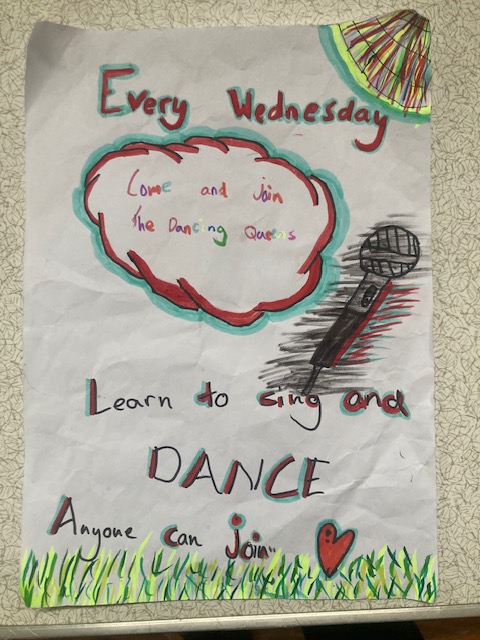 Every Wednesday
Come and Join
The Dancing Queens
Learn to sing and
DANCE
Anyone can join..